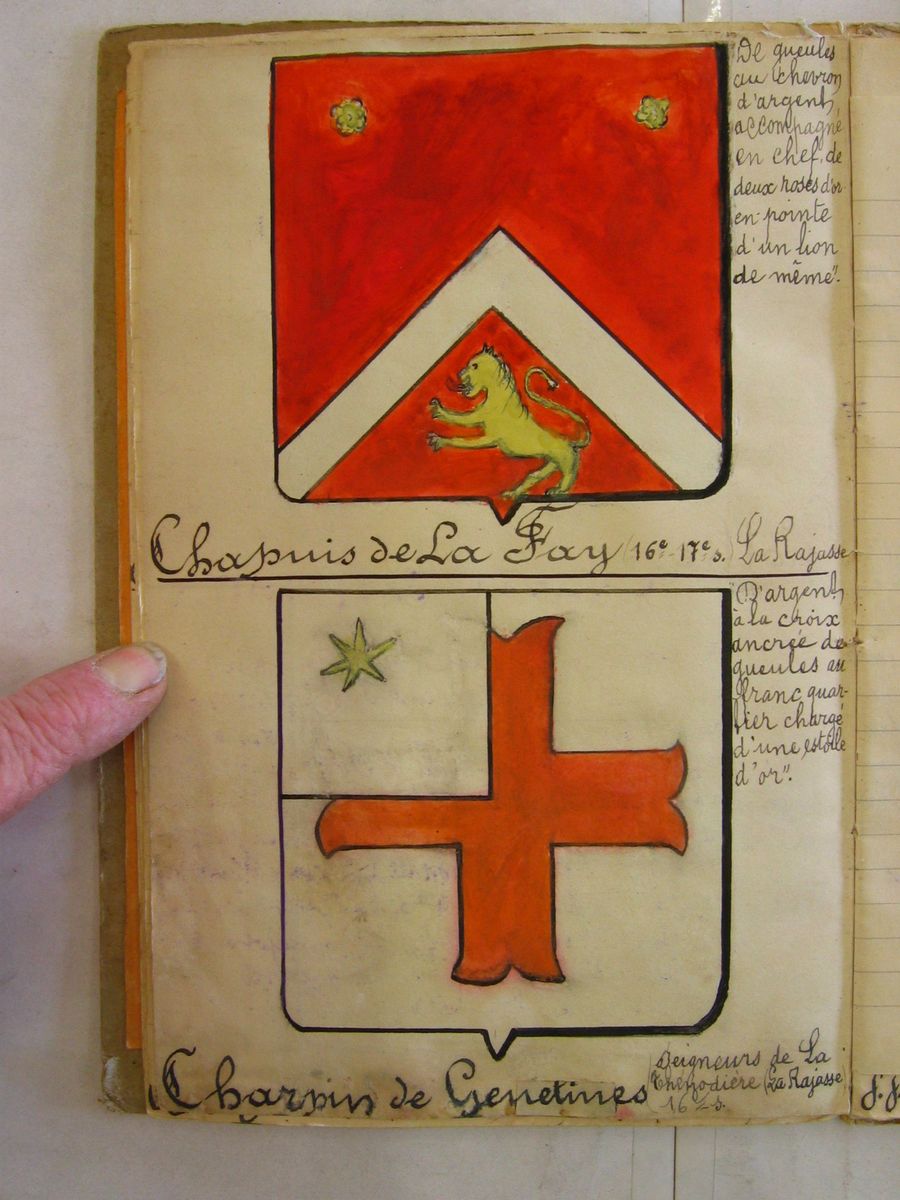 De gueules
au chevron
d'argent,
accompagné
en chef, de
deux roses d'or
en pointe
d'un lion
de même".
Chapuis de La Fay (16e-17e s.) La Rajasse
D'argent
à la croix
ancrée de
gueules au
franc quar-
tier chargé
d'une estoile
d'or".
Charpin de Genetines
Seigneurs de La
(La Rajasse)
16e s.
J. J.